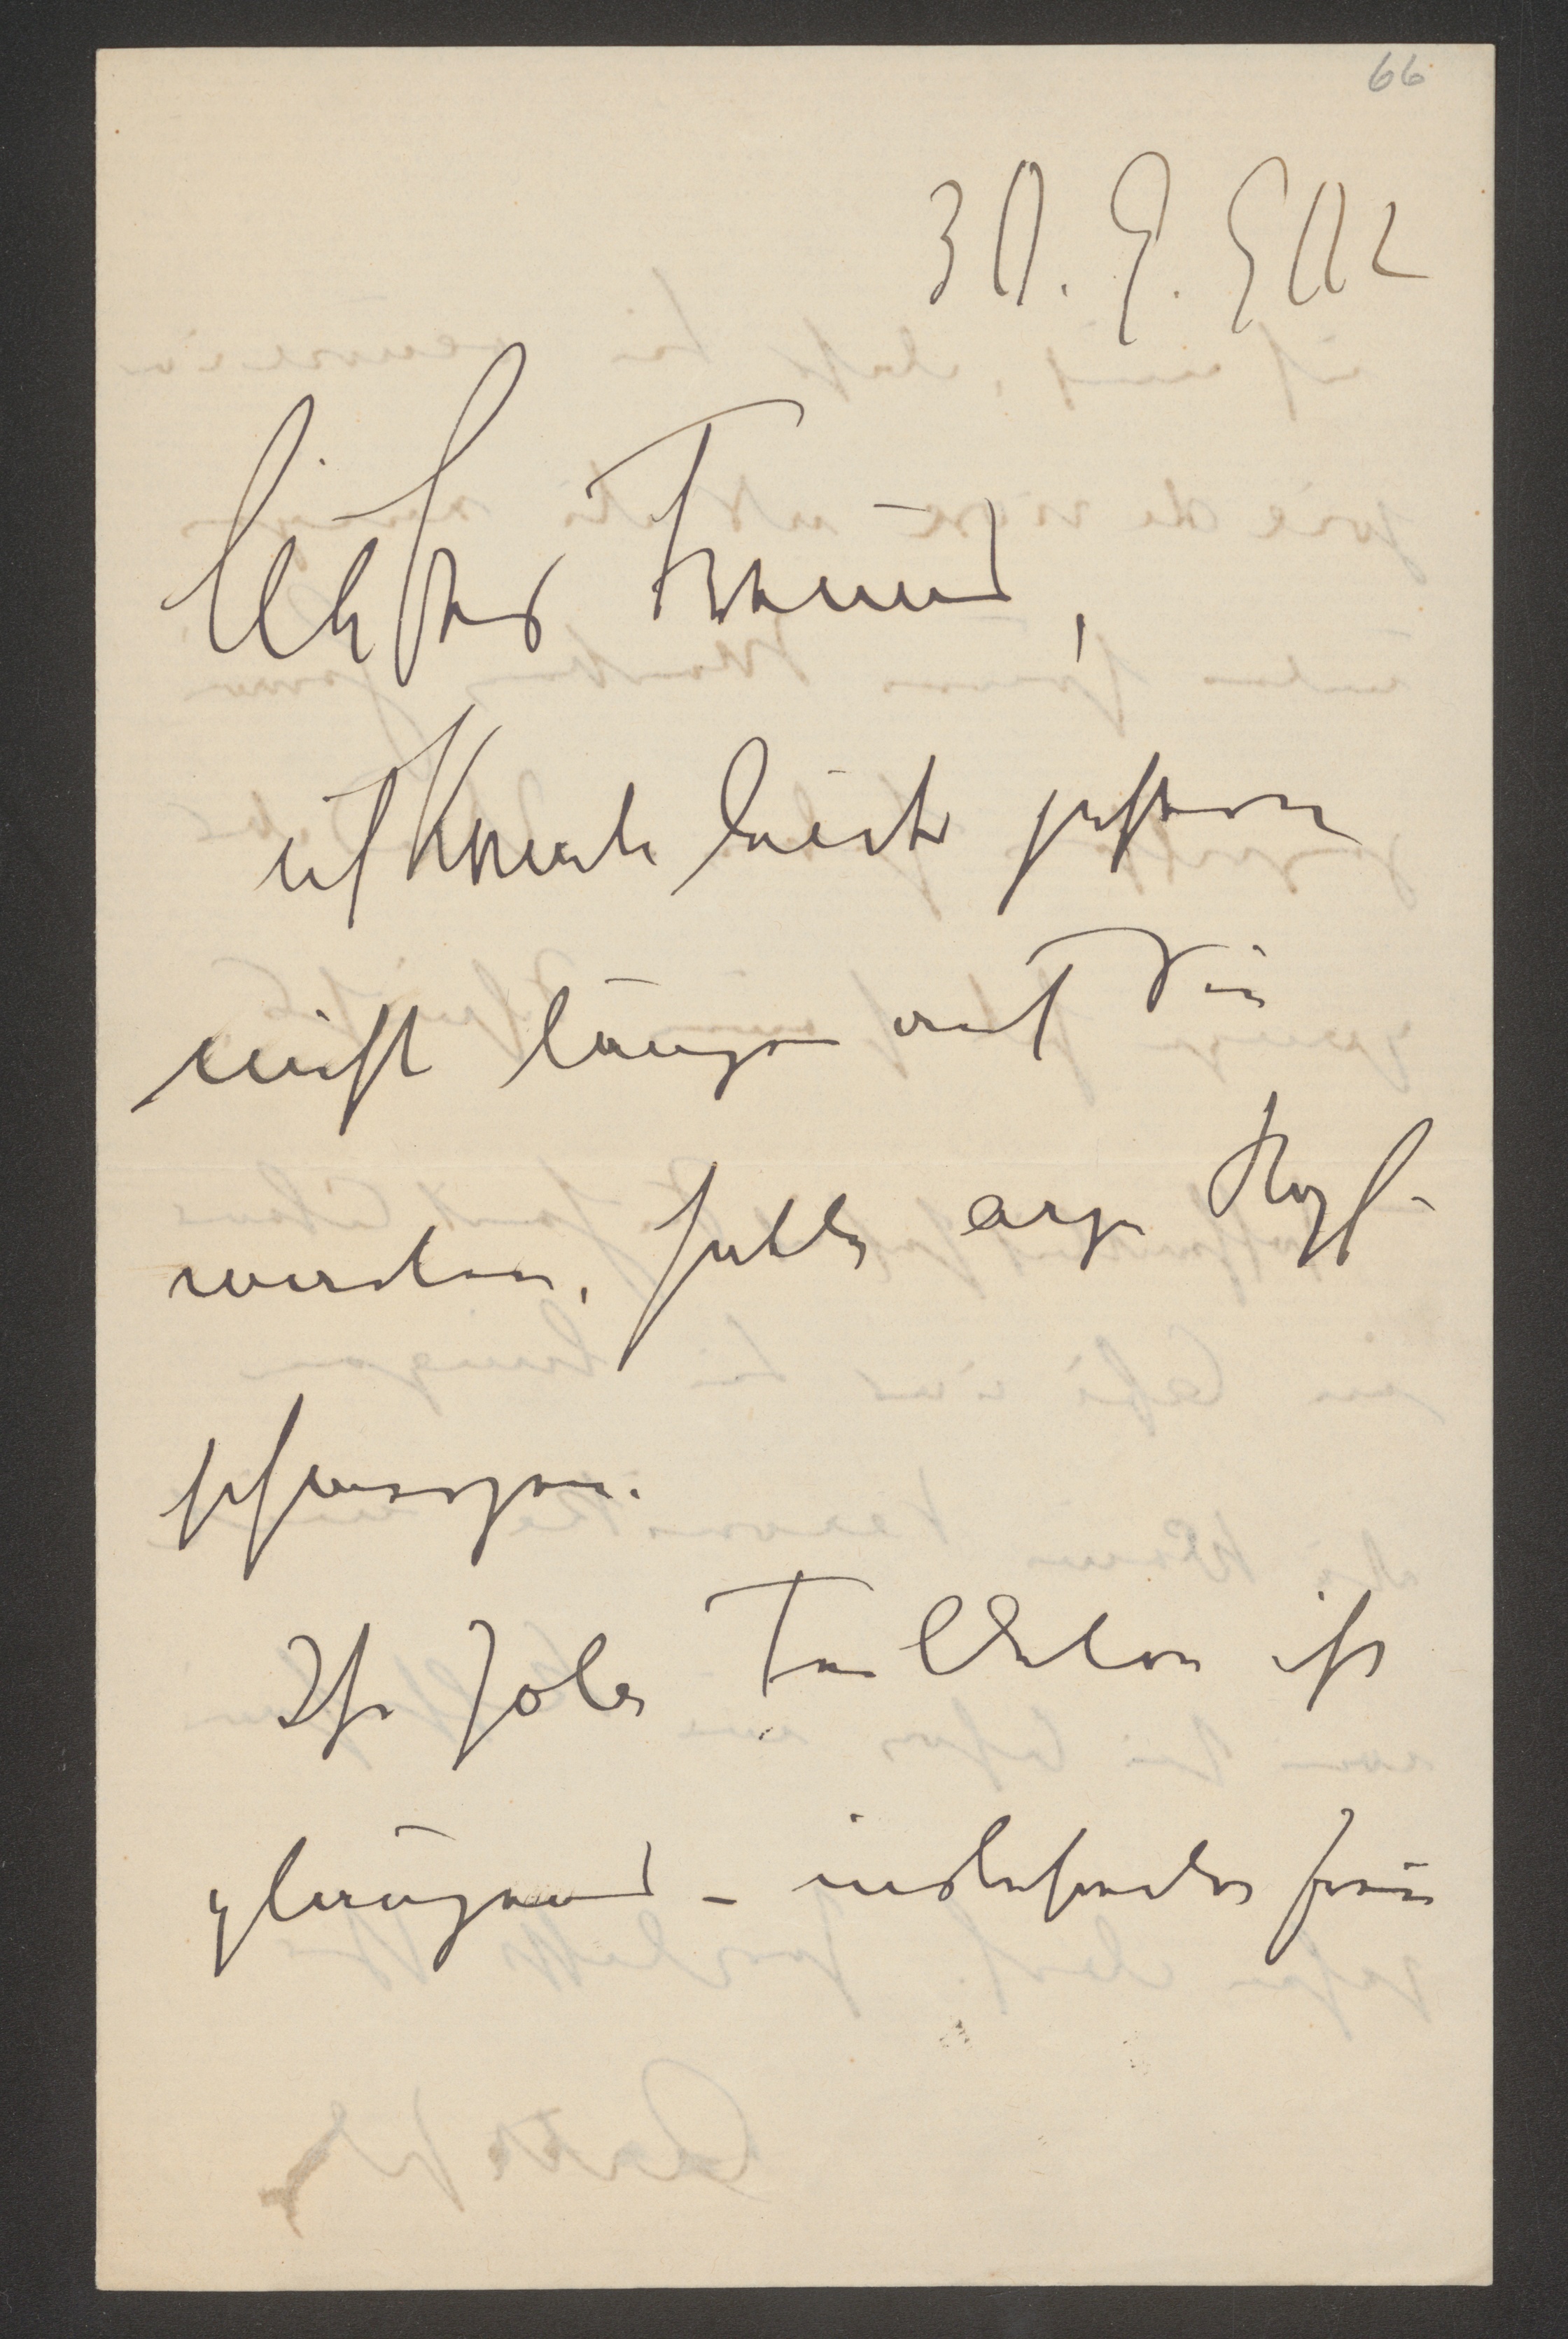 66
30. 9. 902
Liebster Freund,
ich konnte leider gestern
nicht länger auf Sie
warten, hatte arge Kopf-
schmerzen.
Ihr Zola Feuilleton ist
glänzend – insbesondere freue